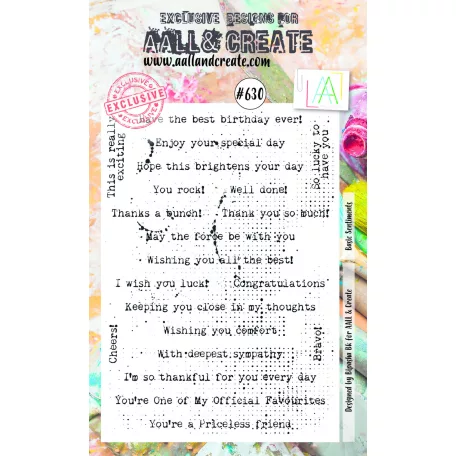 EXCLUSIVE DESIGNS FOR
AALL & CREATE
www.aallandcreate.com
EXCLUSIVE
EXCLUSIVE
EXCLUSIVE
#630
AA
This is really
exciting
Have the best birthday ever!
So lucky to
have you
Enjoy your special day
Hope this brightens your day
You rock!
Well done!
Thanks a bunch!
Thank you so much!
May the force be with you
Wishing you all the best!
I wish you luck!
Congratulations
Keeping you close in my thoughts
Cheers!
Wishing you comfort
Bravo!
With deepest sympathy
I'm so thankful for you every day
You're One of My Official Favourites
You're a Priceless friend
Basic Sentiments
Designed by Bipasha Bk for AALL & Create